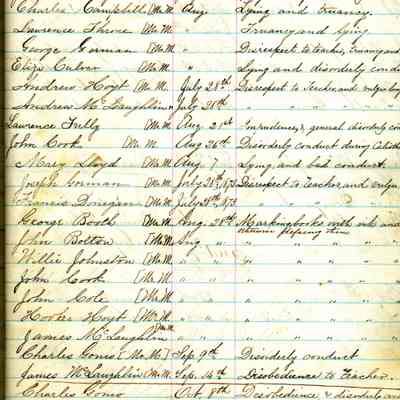 Charles Campbell [Mc.M. Aug. Lying and truancy.
Lawrence Throne [Mc.M. " Truancy and lying
George Gorman [Mc.M. " Disrespect to teacher, truancy and
Eliza Culver [Mc.M. " Lying and disorderly cond
Andrew Hoyt [Mc.M. July 28th Disrespect to Teacher, and vulgar
Andrew McLaughlin " July 28th " " " "
Lawrence Tully [Mc.M. Aug. 21st Impudence, & general disorderly con
John Cook [Mc.M. Aug 26th Disorderly conduct during Calisth
Mary Lloyd [Mc.M. Aug. 7 Lying and bad conduct.
Joseph Gorman [Mc.M. July 28th, 1873 Disrespect to Teacher, and vulgar
Francis Donegan [Mc.M. July 28th, 1873 " " " "
George Booth [Mc.M. Aug. 28th Marking books with ink and
John Bolton [Mc.M. Aug. " " " " "
Willie Johnston [Mc.M. " " " " " "
John Cook [Mc.M. " " " " " "
John Cole [Mc.M. " " " " "
Hooker Hoyt [Mc.M. " " " " " "
James McLaughlin [Mc.M. " " " " "
Charles Gomo [Mc.M.] Sep. 9th Disorderly conduct
James McLaughlin [Mc.M. Sep. 14th Disobedience to Teacher.
Charles Gomo Oct. 8th Disobedience & disorderly